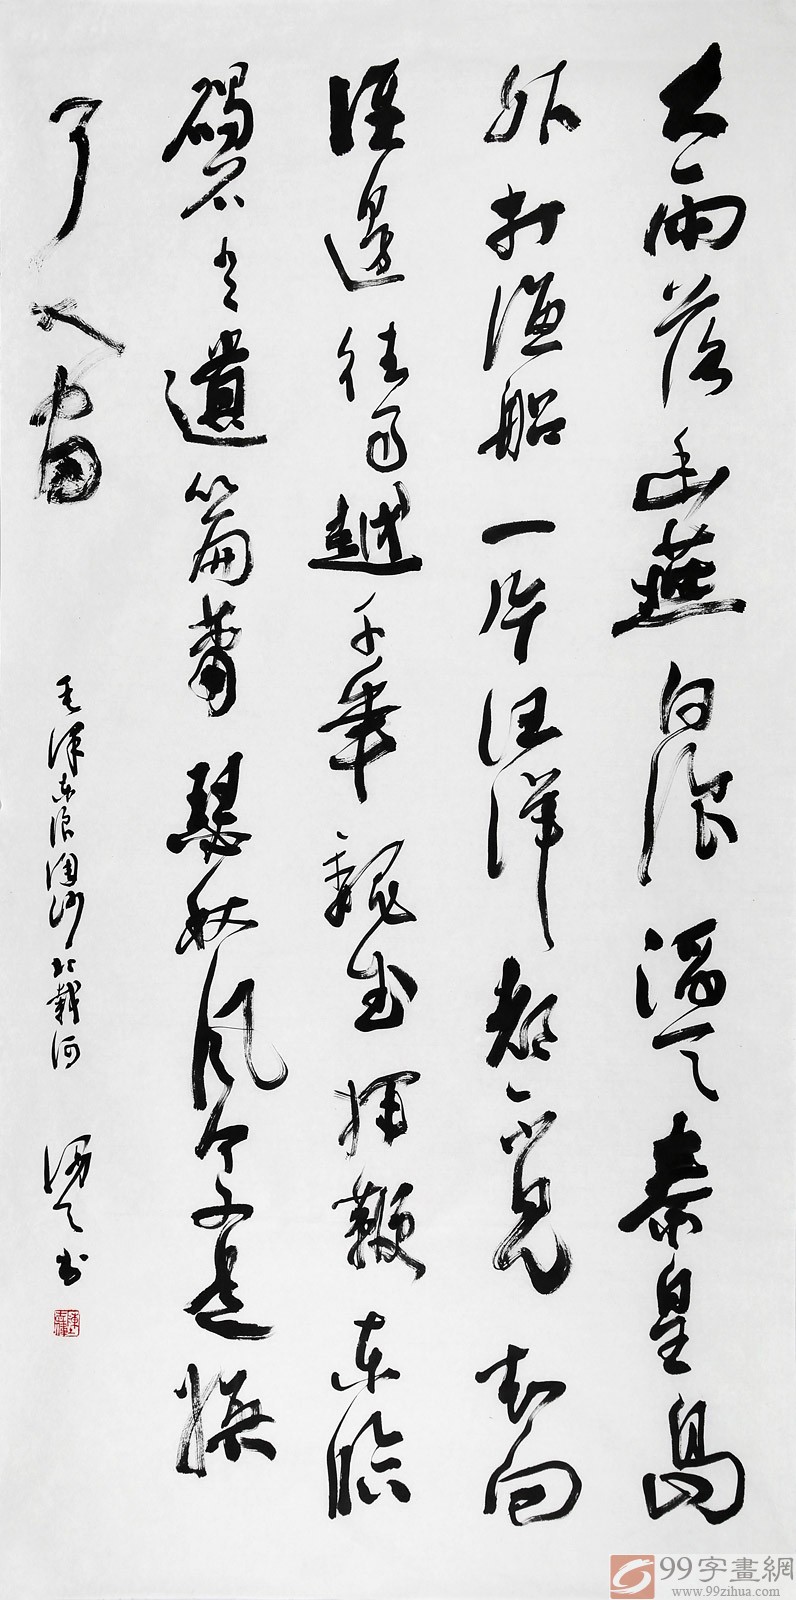 大雨落幽燕白浪滔天秦皇島
外打漁船一片汪洋都不見知向
誰邊往事越千年魏武揮鞭東臨
碣石有遺篇蕭瑟秋風今又是換
了人間
毛澤東浪淘沙北戴河 書
99字畫網
www.99zihua.com